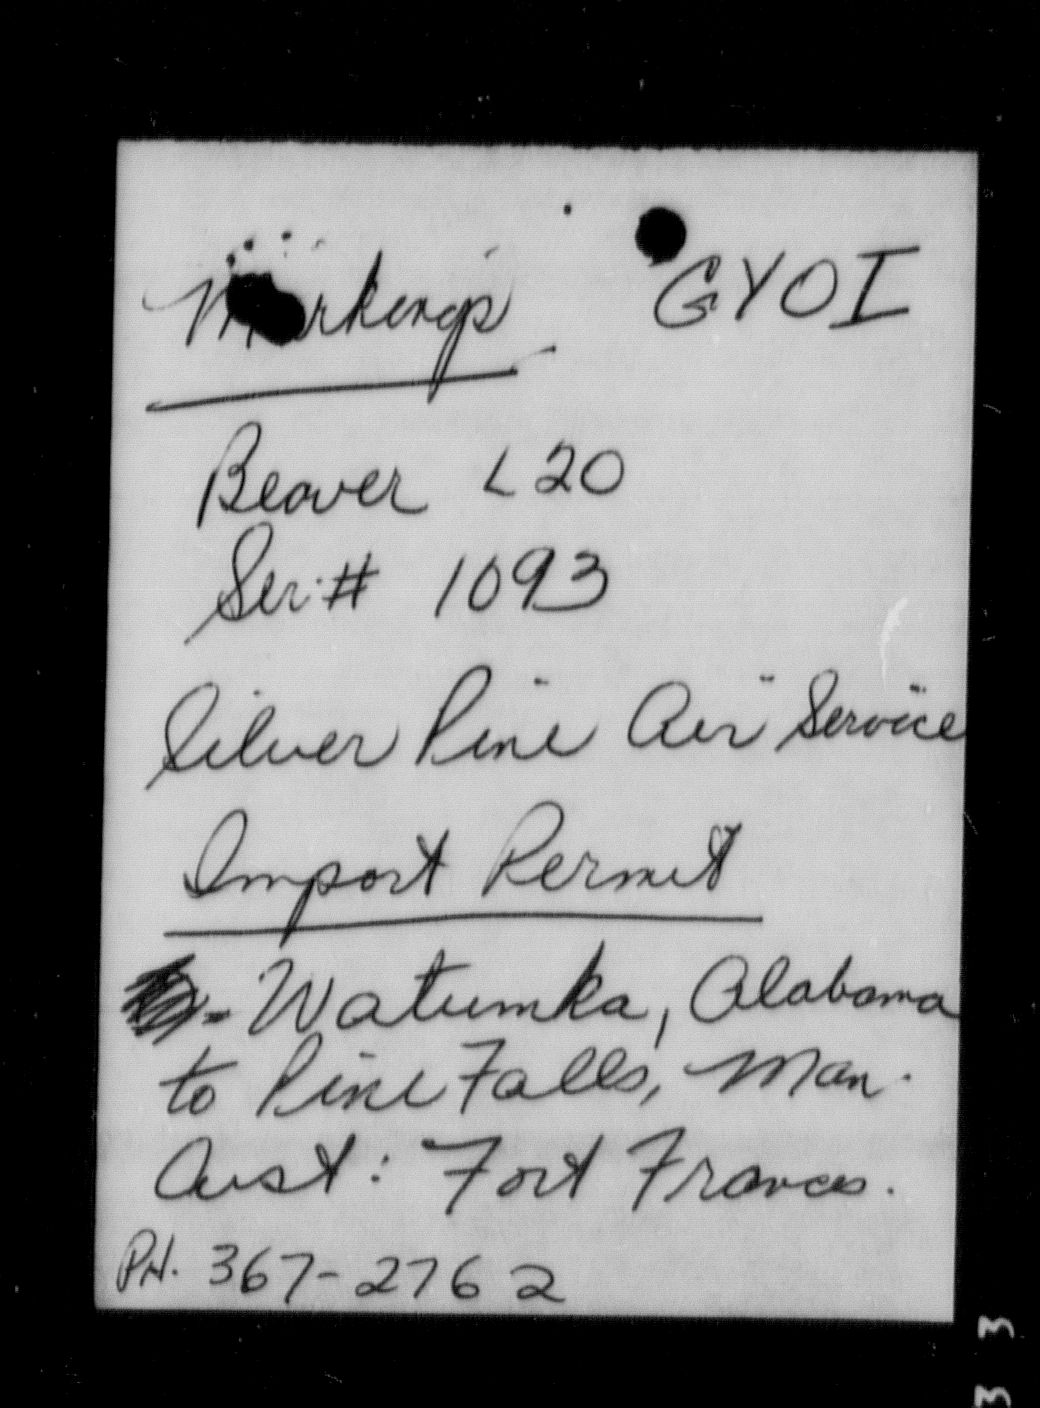 Markings GYOI
Beaver L20
Ser # 1093
Silver Pine Air Service
Import Permit
- Watumka, Alabama
to Pine Falls, Man.
Cust: Fort Frances.
PH. 367-2762
3
3